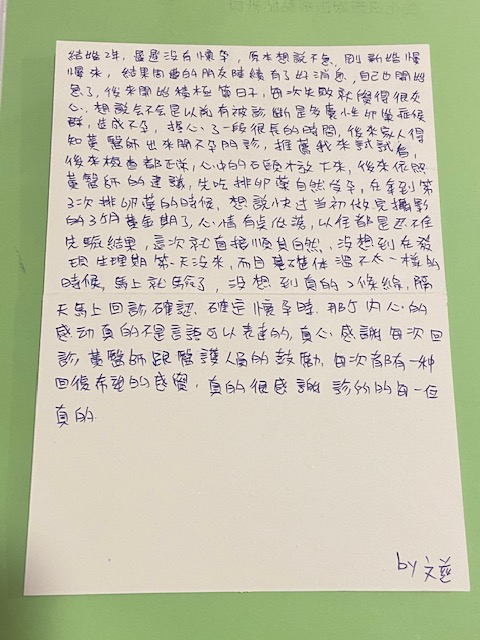 結婚2年,遲遲沒有懷孕,原本想說不急,剛新婚慢
慢來,結果周邊的朋友陸續有了好消息,自己也開始
急了,後來開始積極算日子,每次失敗就覺得很灰
心,想說會不會是以前有被診斷是多囊性卵巢症候
群,造成不孕,擔心了一段很長的時間,後來家人得
知黃醫師出來開不孕門診,推薦我來試試看,
後來檢查都正常,心中的石頭才放下來,後來依照
黃醫師的建議,先吃排卵藥自然受孕,在拿到第
3次排卵藥的時候,想說快過當初做完攝影
的3個月黃金期了,心情有點低落,以往都是忍不住
先驗結果,這次就直接順其自然,沒想到在發
現生理期第一天沒來,而且基礎体溫不太一樣的
時候,馬上就驗了,沒想到真的2條線,隔
天馬上回診確認,確定懷孕時,那個內心的
感动真的不是言語可以表達的,真心感謝每次回
診,黃醫師跟醫護人員的鼓勵,每次都有一种
回復希望的感覺,真的很感謝 診所的每一位
真的
by 文慈